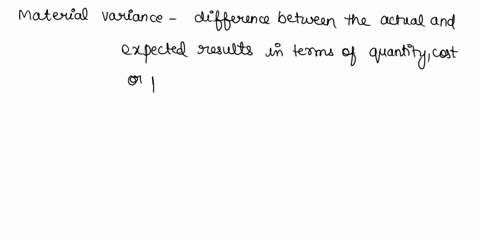 Material variance - difference between the actual and
expected results in terms of quantity, cost
or